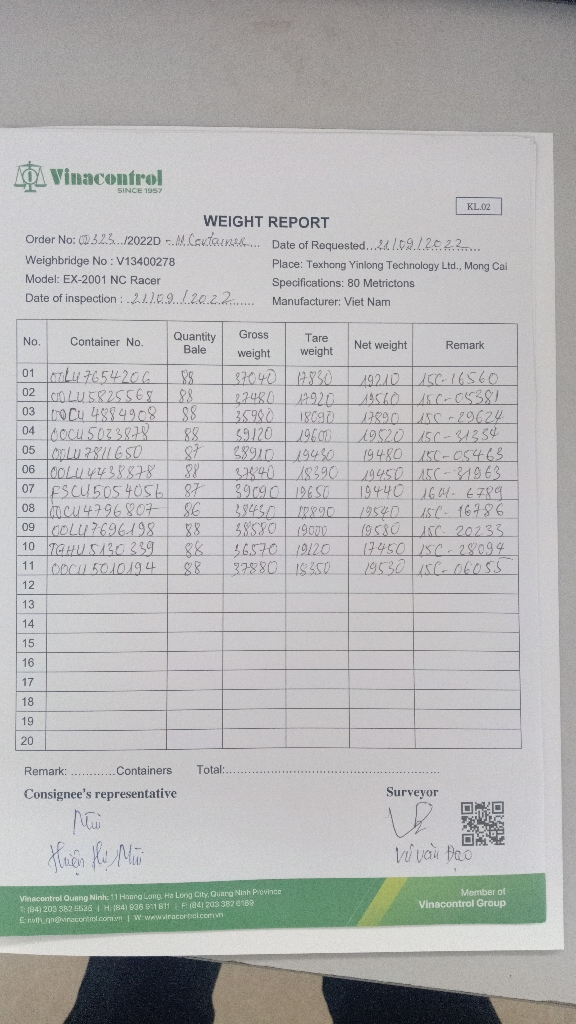 Vinacontrol
SINCE 1957
KL.02
WEIGHT REPORT
Order No: 00323 /2022D - 11 Container Date of Requested 21/09/2022
Weighbridge No : V13400278 Place: Texhong Yinlong Technology Ltd., Mong Cai
Model: EX-2001 NC Racer Specifications: 80 Metrictons
Date of inspection : 21/09/2022 Manufacturer: Viet Nam
No. Container No. Quantity Bale Gross weight Tare weight Net weight Remark
01 OOLU7654206 88 37040 17830 19210 15C-16560
02 OOLU5825568 88 37480 17920 19560 15C-05381
03 OOCU4884908 88 35980 18090 17890 15C-29624
04 OOCU5023878 88 39120 19600 19520 15C-31354
05 OOLU7811650 87 38910 19430 19480 15C-05463
06 OOLU4438878 88 37840 18390 19450 15C-31963
07 FSCU5054056 87 39090 19650 19440 16M-6789
08 OOCU4796807 86 38430 18890 19540 15C-16786
09 OOLU7696198 88 38580 19000 19580 15C-20233
10 TGHU5130339 88 36570 19120 17450 15C-28094
11 OOCU5010194 88 37880 18350 19530 15C-06055
12
13
14
15
16
17
18
19
20
Remark: ............Containers Total:
Consignee's representative Surveyor
Mùi
Vũ Văn Đạo
Vinacontrol Quang Ninh: 11 Hoang Long, Ha Long City, Quang Ninh Province
Member of
Vinacontrol Group
W: www.vinacontrol.com.vn